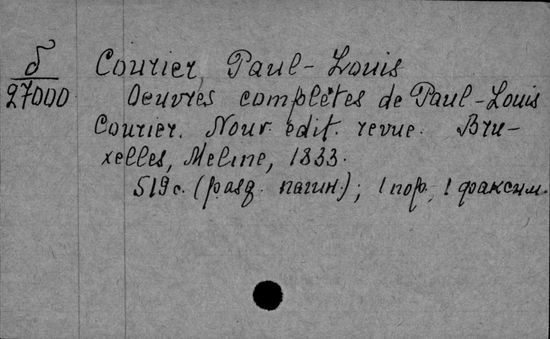 б
27000
Courier, Paul-Louis
Oeuvres complètes de Paul-Louis
Courier. Nouv. édit. revue. Bru-
xelles, Meline, 1833.
519 с. (разд. пагин.); 1 порт., 1 факсим.